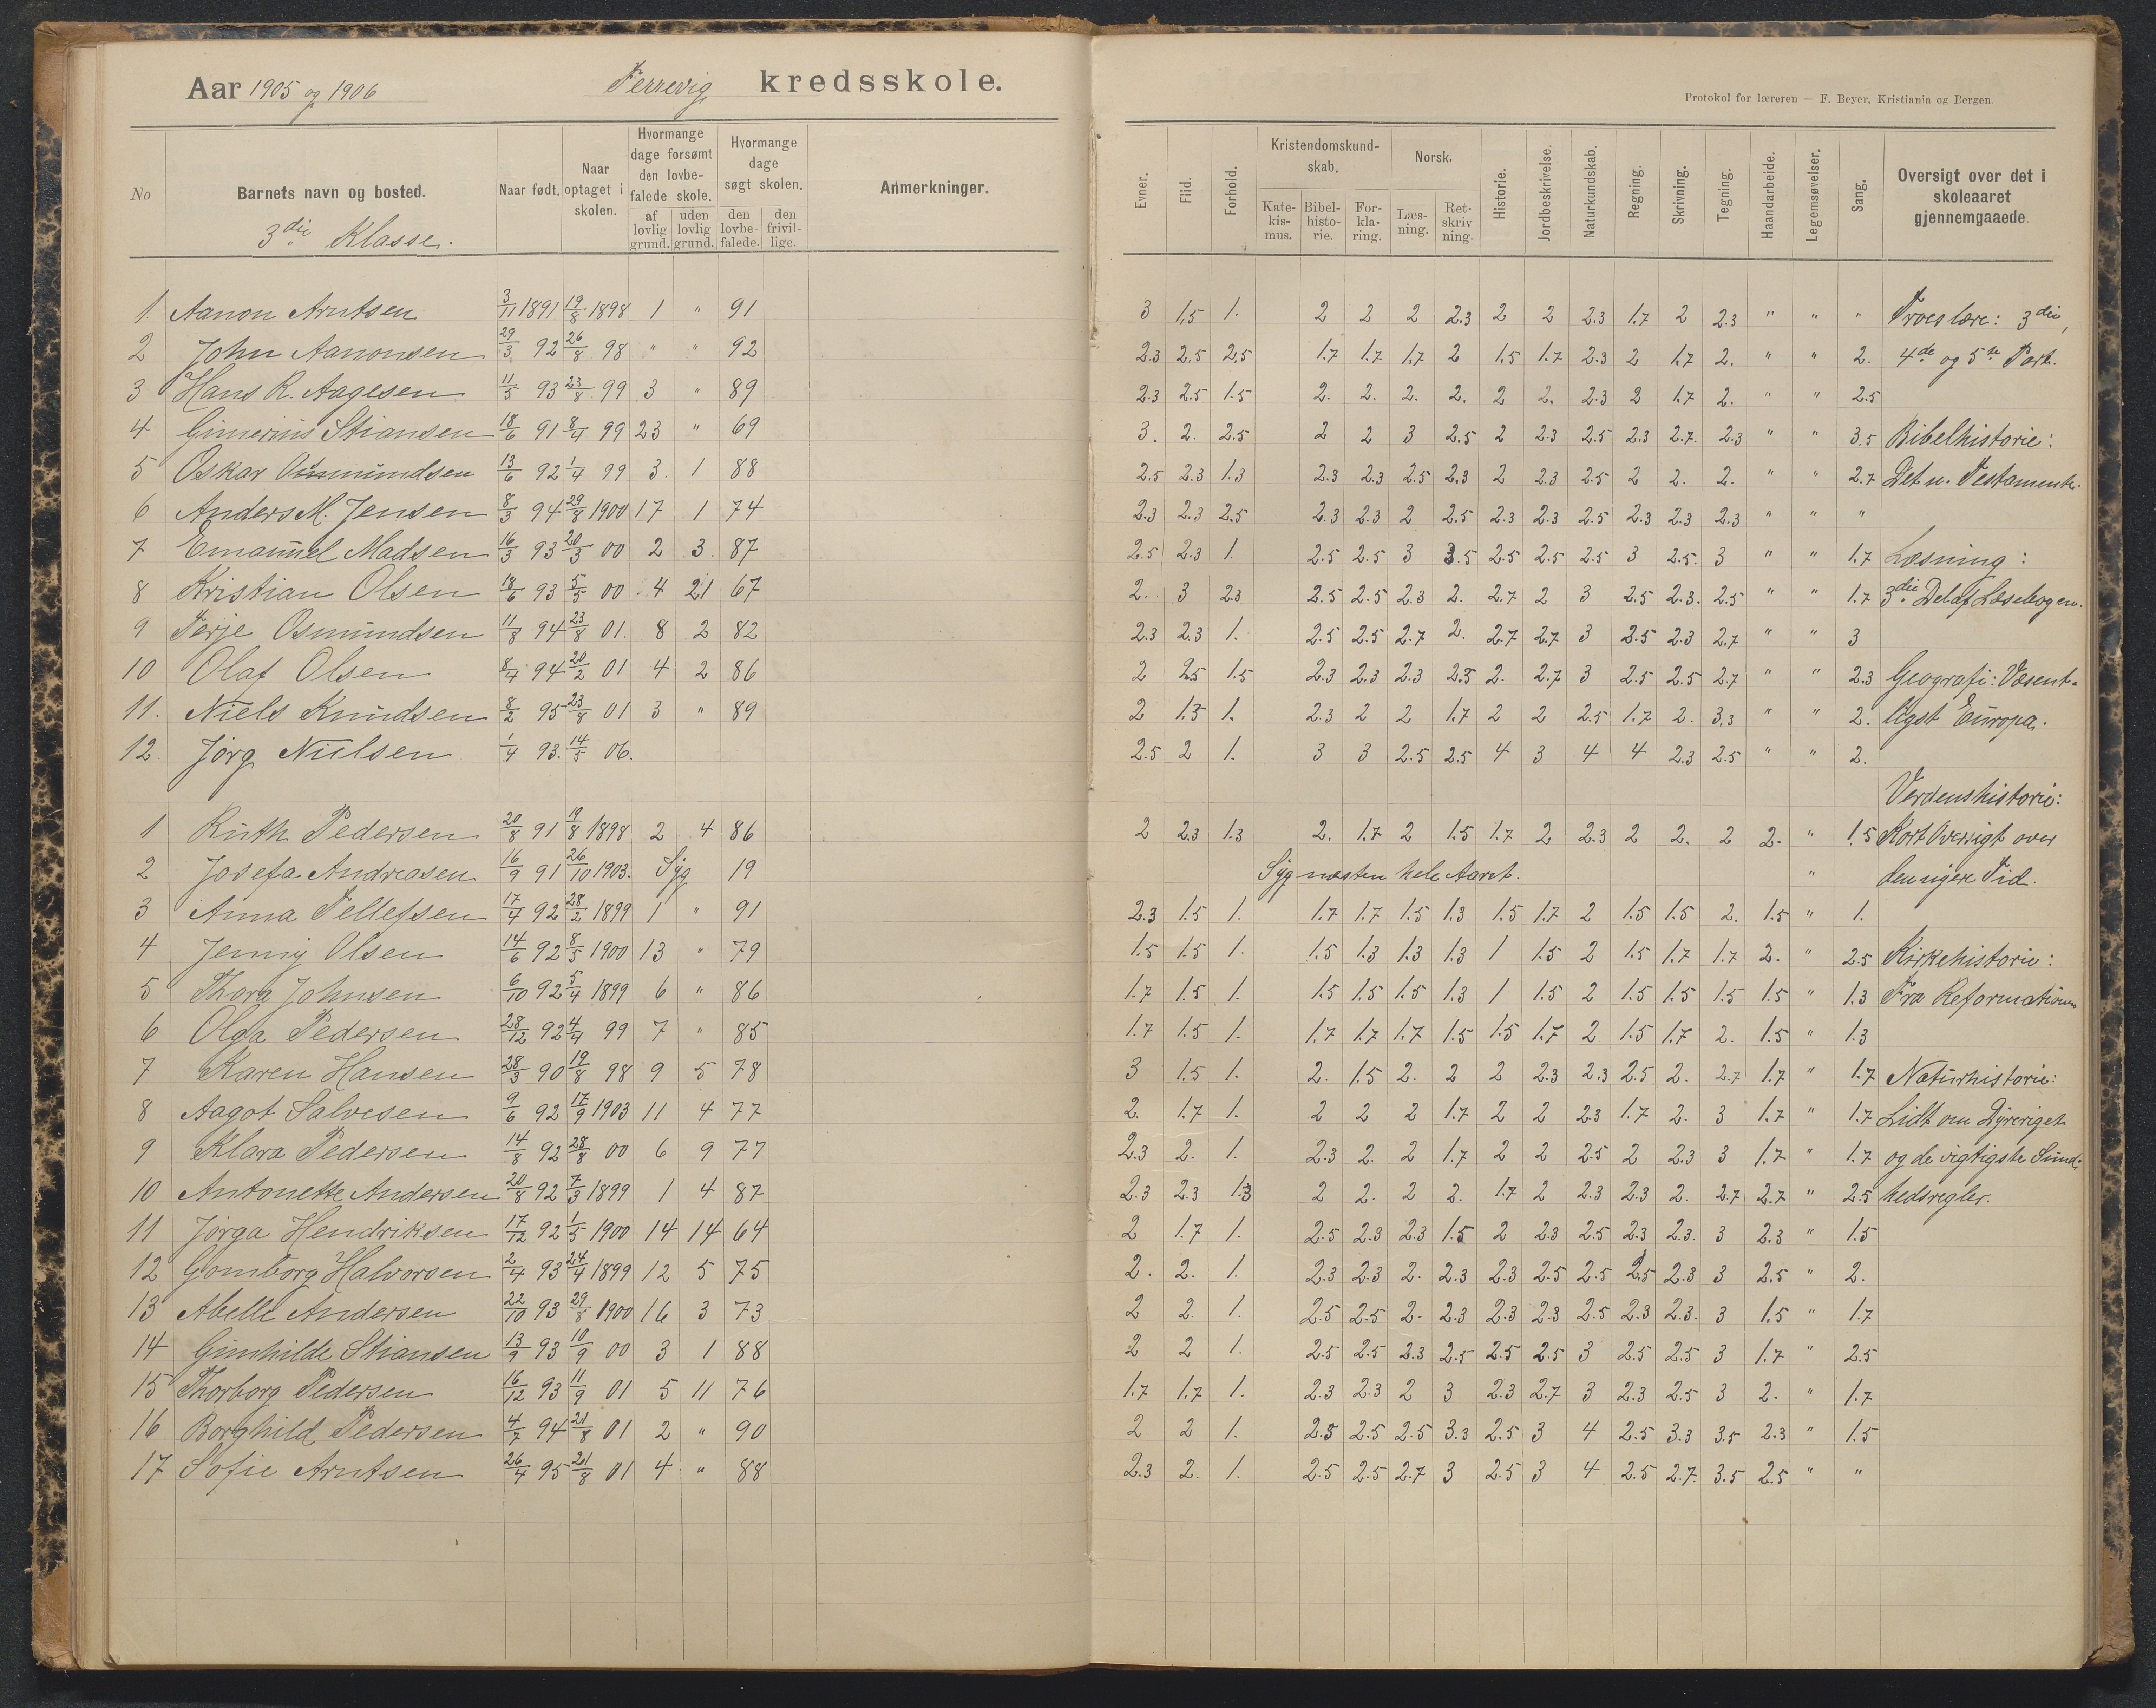 Aar 1905 og 1906 Ferrevig kredsskole.
Protokol for læreren — F. Beyer, Kristiania og Bergen.
No | Barnets navn og bosted. | Naar født. | Naar optaget i skolen. | Hvormange dage forsømt den lovbefalede skole. af lovlig grund. | uden lovlig grund. | Hvormange dage søgt skolen. den lovbefalede. | den frivillige. | Anmerkninger. | Evner. | Flid. | Forhold. | Kristendomskundskab. Katekismus. | Bibelhistorie. | Forklaring. | Norsk. Læsning. | Retskrivning. | Historie. | Jordbeskrivelse. | Naturkundskab. | Regning. | Skrivning. | Tegning. | Haandarbeide. | Legemsøvelser. | Sang. | Oversigt over det i skoleaaret gjennemgaaede.
3die Klasse.
1 Aanon Arntsen 3/11 1891 19/8 1898 1 " 91 3 1.5 1. 2 2 2 2.3 2 2 2.3 1.7 2 2.3 " " " Troeslære: 3die,
2 John Aanonsen 29/3 92 26/8 98 " " 92 2.3 2.5 2.5 1.7 1.7 1.7 2 1.5 1.7 2.3 2 1.7 2. " " 2. 4de og 5te Part.
3 Hans R. Aagesen 11/5 93 23/8 99 3 " 89 2.3 2.5 1.5 2. 2. 2. 2. 2 2. 2.3 2 1.7 2. " " 2.5
4 Gimerius Stiansen 18/6 91 8/4 99 23 " 69 3. 2. 2.5 2 2 3 2.5 2 2.3 2.5 2.3 2.7. 2.3 " " 3.5 Bibelhistorie:
5 Oskar Osmundsen 13/6 92 1/4 99 3. 1 88 2.5 2.3 1.3 2.3 2.3 2.5 2.3 2 2.3 2.5 2 2. 2. " " 2.7 Det n. Testamente.
6 Anders M. Jensen 8/3 94 29/8 1900 17 1 74 2.3 2.3 2.5 2.3 2.3 2 2.5 2.3 2.3 2.5 2.3 2.3 2.3 " " "
7 Emanuel Madsen 16/3 93 20/3 00 2 3. 87 2.5 2.3 1. 2.5 2.5 3 3.5 2.5 2.5 2.5 3 2.5. 3 " " 1.7 Læsning:
8 Kristian Olsen 18/6 93 5/5 00 4 21 67 2. 3 2.3 2.5 2.5 2.3 2. 2.7 2 3 2.5 2.3. 2.5 " " 1.7 3die Del af Læsebogen.
9 Terje Osmundsen 11/8 94 23/8 01. 8 2 82 2.3 2.3 1. 2.5 2.5 2.7 2. 2.7 2.7 3 2.5 2.3 2.7 " " 3
10 Olaf Olsen 8/4 94 20/2 01 4 2 86 2 2.5 1.5 2.3 2.3 2.3 2.3 2. 2.7 3 2.5 2.5 2.7 " " 2.3 Geografi: Væsent-
11. Niels Knudsen 8/2 95 23/8 01 3 " 89 2 1.3 1. 2.3 2 2 1.7 2 2 2.5 1.7 2. 3.3 " " 2. ligst Europa.
12. Jørg Nielsen 1/4 93. 14/5 06. 2.5 2 1. 3 3 2.5 2.5 4 3 4 4 2.3 2.5 " " 2.
Verdenshistorie:
1 Ruth Pedersen 20/8 91 19/8 1898 2 4 86 2 2.3 1.3 2. 1.7 2 1.5 1.7 2 2.3 2 2. 2 2. " 1.5 Kort Oversigt over
2 Josefa Andreasen 16/9 91 26/10 1903. Syg 19 Syg næsten hele Aaret. " den nyere Tid.
3 Anna Tellefsen 17/4 92 28/2 1899 1 " 91 2.3 1.5 1. 1.7 1.7 1.5 1.3 1.5 1.7 2 1.5 1.5 2. 1.5 " 1.
4 Jenny Olsen 14/6 92 8/5 1900 13 " 79 1.5 1.5 1. 1.5 1.3 1.3 1.3 1 1.5 2 1.5 1.7 1.7 2. " 2.5 Kirkehistorie:
5 Thora Johnsen 6/10 92 5/4 1899 6 " 86 1.7 1.5 1. 1.5 1.5 1.5 1.3 1 1.5 2 1.5 1.5 1.5 1.5 " 1.3 Fra Reformationen
6 Olga Pedersen 28/12 92 4/4 99 7 " 85 1.7 1.5 1. 1.7 1.7 1.7 1.5 1.5 1.7 2 1.5 1.7 2. 1.5 " 1.3
7 Karen Hansen 28/3 90 19/8 98 9 5 78 3 1.5 1. 2. 1.5 2. 2 2 2.3 2.3 2.5 2. 2.7 1.7 " 1.7 Naturhistorie:
8 Aagot Salvesen 9/6 92 17/9 1903 11 4 77 2. 1.7 1. 2 2 2 1.7 2 2 2.3 1.7 2. 3 1.7 " 1.7 Lidt om Dyreriget
9 Klara Pedersen 14/8 92 28/8 00 6 9 77 2.3 2. 1. 2.3 2. 2 1.7 2 2 2.5 2 2.3 3 1.7 " 1.7 og de vigtigste Sund-
10 Antonette Andersen 20/8 92 7/3 1899 1 4 87 2.3 2.3 1.3 2 2. 2 2. 1.7 2 2.3 2.3 2. 2.7 2.7 " 2.5 hedsregler.
11 Jørga Hendriksen 17/12 92 1/5 1900 14 14 64 2 1.7 1. 2.5 2.3 2.3 1.5 2 2.3 2.5 2.3 2.3. 3 2.3 " 1.5
12 Gomborg Halvorsen 2/4 93 24/4 1899 12 5 75 2. 2. 1. 2.3 2.3 2. 2.3 2.3 2.5 2.5 2.5 2.3 3 2.5 " 2.
13 Abelle Andersen 22/10 93 29/8 1900 16 3 73 2 2. 1. 2.5 2.5 2. 2.3 2.3 2.3 2.5 2.3 2.3. 3 1.5 " 1.7
14 Gunhilde Stiansen 13/9 93 10/9 00 3 1 88 2 2 1. 2.5 2.5 2.3 2.5 2.5 2.5 3 2.5 2.5 3 1.7 " 2.5
15 Thorborg Pedersen 16/12 93 11/9 01 5 11 76 1.7 1.7 1. 2.3 2.3 2 3 2.3 2.7 3 2.3 2.5 3 2. " 1.7
16 Borghild Pedersen 4/7 94 21/8 01 2 " 90 2 2 1. 2.5 2.5 2.5 3.3 2.5 3 4 2.5 3.3 3.5 2.3 " 1.5
17 Sofie Arntsen 26/4 95 21/8 01 4 " 88 2.3 2. 1. 2.5 2.5 2.7 3 2.5 3 4 2.5 2.7. 3.5 2.5 " "